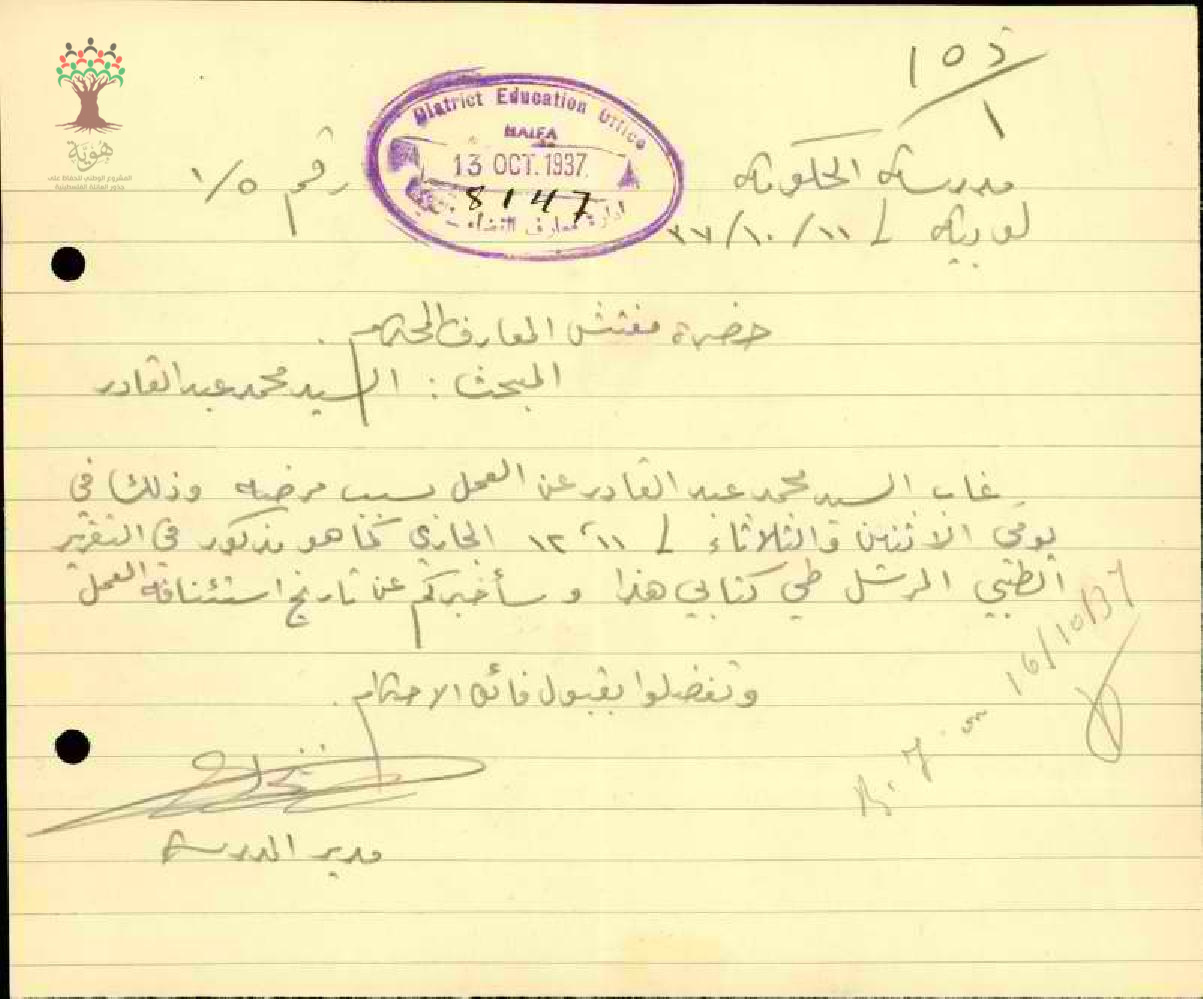 هوية
المشروع الوطني للحفاظ على
جذور العائلة الفلسطينية
District Education Office
HAIFA
13 OCT. 1937
8147
ادارة معارف القضاء
مدرسة الحكومة
رقم ١/٥
لوبية ١١/١٠/٣٧
حضرة مفتش المعارف المحترم.
المبحث: السيد محمد عبد القادر
غاب السيد محمد عبد القادر عن العمل بسبب مرضه وذلك في
يومي الاثنين والثلاثاء ١١، ١٢ الجاري كما هو مذكور في التقرير
الطبي المرسل طي كتابي هذا وسأخبركم عن تاريخ استئنافه العمل
وتفضلوا بقبول فائق الاحترام.
مدير المدرسة
16/10/37